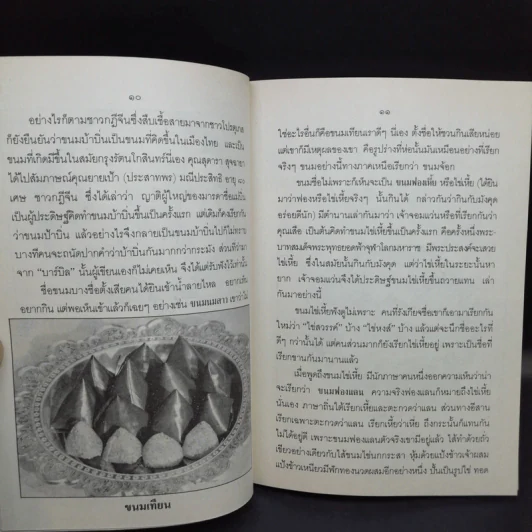 ๑๐
อย่างไรก็ตามชาวกฎีจีนซึ่งสืบเชื้อสายมาจากชาวโปรตุเกส
ก็ยังยืนยันว่าขนมบ้าบิ่นเป็นขนมที่คิดขึ้นในเมืองไทย และเป็น
ขนมที่เกิดมีขึ้นในสมัยกรุงรัตนโกสินทร์นี่เอง คุณสุดารา สุจฉายา
ได้ไปสัมภาษณ์คุณยายเป้า (ประสาทพร) มณีประสิทธิ อายุ
เศษ ชาวกฎีจีน ซึ่งได้เล่าว่า ญาติผู้ใหญ่ของมารดาชื่อ
เป็นผู้ประดิษฐ์คิดทำขนมบ้าบิ่นขึ้นเป็นครั้งแรก แต่เดิมก็คงเรียกกัน
ว่าขนมป้าบิ่น แล้วอย่างไรจึงกลายเป็นขนมบ้าบิ่นไปก็ไม่ทราบ
บางทีคนจะถนัดปากคำว่าบ้าบิ่นกันมากกว่ากระมัง ส่วนที่ว่ามา
จาก “บาร์บิล” นั้นผู้เขียนเองก็ไม่เคยเห็น จึงได้แต่รับฟังไว้เท่านั้น
ชื่อขนมบางชื่อตั้งเสียคนได้ยินเข้าน้ำลายไหล อยากเห็น
อยากกิน แต่พอเห็นเข้าแล้วก็เฉยๆ อย่างเช่น ขนมนมสาว เขาว่าไม่
ขนมเทียน
๑๑
ใช่อะไรอื่นก็คือขนมเทียนเราดีๆ นี่เอง ตั้งชื่อให้ชวนกินเสียหน่อย
แต่เขาก็มีเหตุผลของเขา คือรูปร่างที่ห่อนั้นมันเหมือนอย่างที่เรียก
จริงๆ ขนมอย่างนี้ทางภาคเหนือเรียกว่า ขนมจ็อก
ขนมชื่อไม่เพราะก็เห็นจะเป็น ขนมฟองเหี้ย หรือไข่เหี้ย (ได้ยิน
มาว่าฟองหรือไข่เหี้ยจริงๆ นั้นกินได้ กล่าวกันว่ากินกับมังคุด
อร่อยดีนัก) มีตำนานเล่ากันมาว่า เจ้าจอมแว่นหรือที่เรียกกันว่า
คุณเสือ เป็นต้นคิดทำขนมไข่เหี้ยขึ้นเป็นครั้งแรก คือครั้งหนึ่งพระ-
บาทสมเด็จพระพุทธยอดฟ้าจุฬาโลกมหาราช มีพระประสงค์จะเสวย
ไข่เหี้ย ซึ่งในสมัยนั้นกินกับมังคุด แต่ว่าไข่เหี้ยในระยะนั้นหา
ยาก เจ้าจอมแว่นจึงได้ประดิษฐ์ขนมไข่เหี้ยขึ้นถวายแทน เล่า
กันมาอย่างนี้
ขนมไข่เหี้ยฟังดูไม่เพราะ คนที่รังเกียจชื่อเขาก็เอามาเรียกกัน
ใหม่ว่า “ไข่สวรรค์” บ้าง “ไข่หงส์” บ้าง แล้วแต่จะนึกชื่ออะไรที่
ดีๆ กว่านั้นได้ แต่คนส่วนมากก็ยังเรียกไข่เหี้ยอยู่ เพราะเป็นชื่อที่
เรียกขานกันมานานแล้ว
เมื่อพูดถึงขนมไข่เหี้ย มีนักภาษาคนหนึ่งออกความเห็นว่าน่า
จะเรียกว่า ขนมฟองแลน ความจริงฟองแลนก็หมายถึงไข่เหี้ย
นั่นเอง ภาษาถิ่นใต้เรียกเหี้ยและตะกวดว่าแลน ส่วนทางอีสาน
เรียกเฉพาะตะกวดว่าแลน เรียกเหี้ยว่าเหี้ย ถึงกระนั้นก็แทนกัน
ไม่ได้อยู่ดี เพราะขนมฟองแลนตัวจริงเขามีอยู่แล้ว ได้ทำด้วยถั่ว
เขียวอย่างเดียวกับไส้ขนมไข่นกกระสา หุ้มด้วยแป้งข้าวเจ้าผสม
แป้งข้าวเหนียวมีฟักทองนวดผสมอีกอย่างหนึ่ง ปั้นเป็นรูปไข่ ทอด